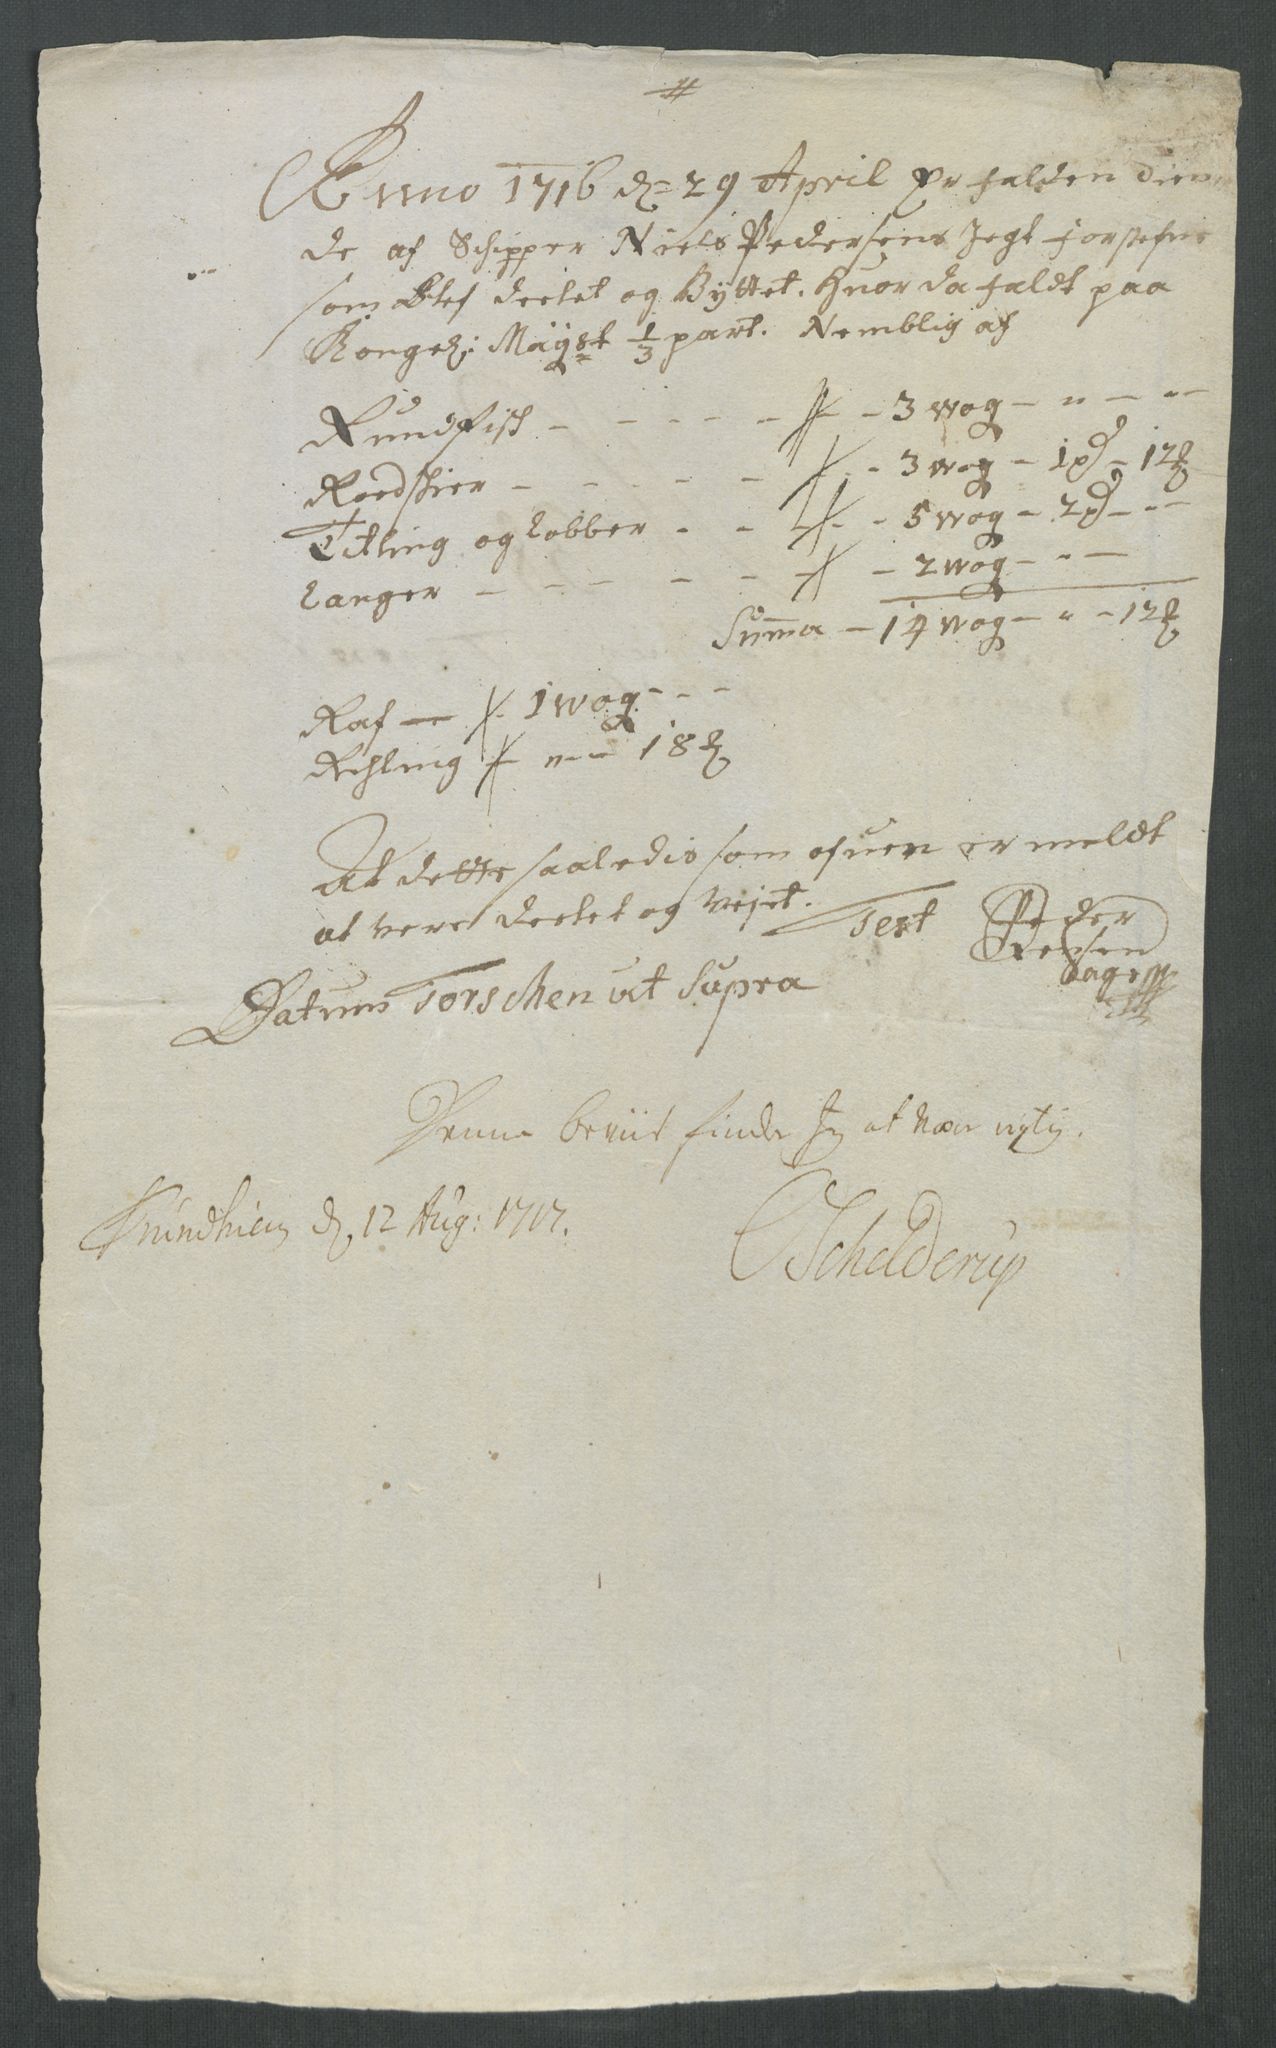 Anno 1716 d: 29 April Er falden Tien
de af Schipper Niels Pedersens Jegt
som blef deelet og Byttet. Huor da faldt paa
Kongel: Mayst 1/3 part. Nemblig af
Rundfisch - - - - - - 3 wog - " - " -
Roedschier - - - - - - 3 wog - 1 p - 12 ℔
Titling og Lobber - - - - 5 wog - 2 p - - -
Langer - - - - - - - 2 wog - " -
Summa - 14 wog - " - 12 ℔
Raf - 1 wog - - -
Rehling - " - 18 ℔
At dette saaledis som ofuen er meldt
at vere deelet og Vejet. Test Peder
Datum Torschen ut Supra
Denne beviis finder Jeg at vær rigtig.
Trundhiem d. 12 Aug: 1717.
Schelderup